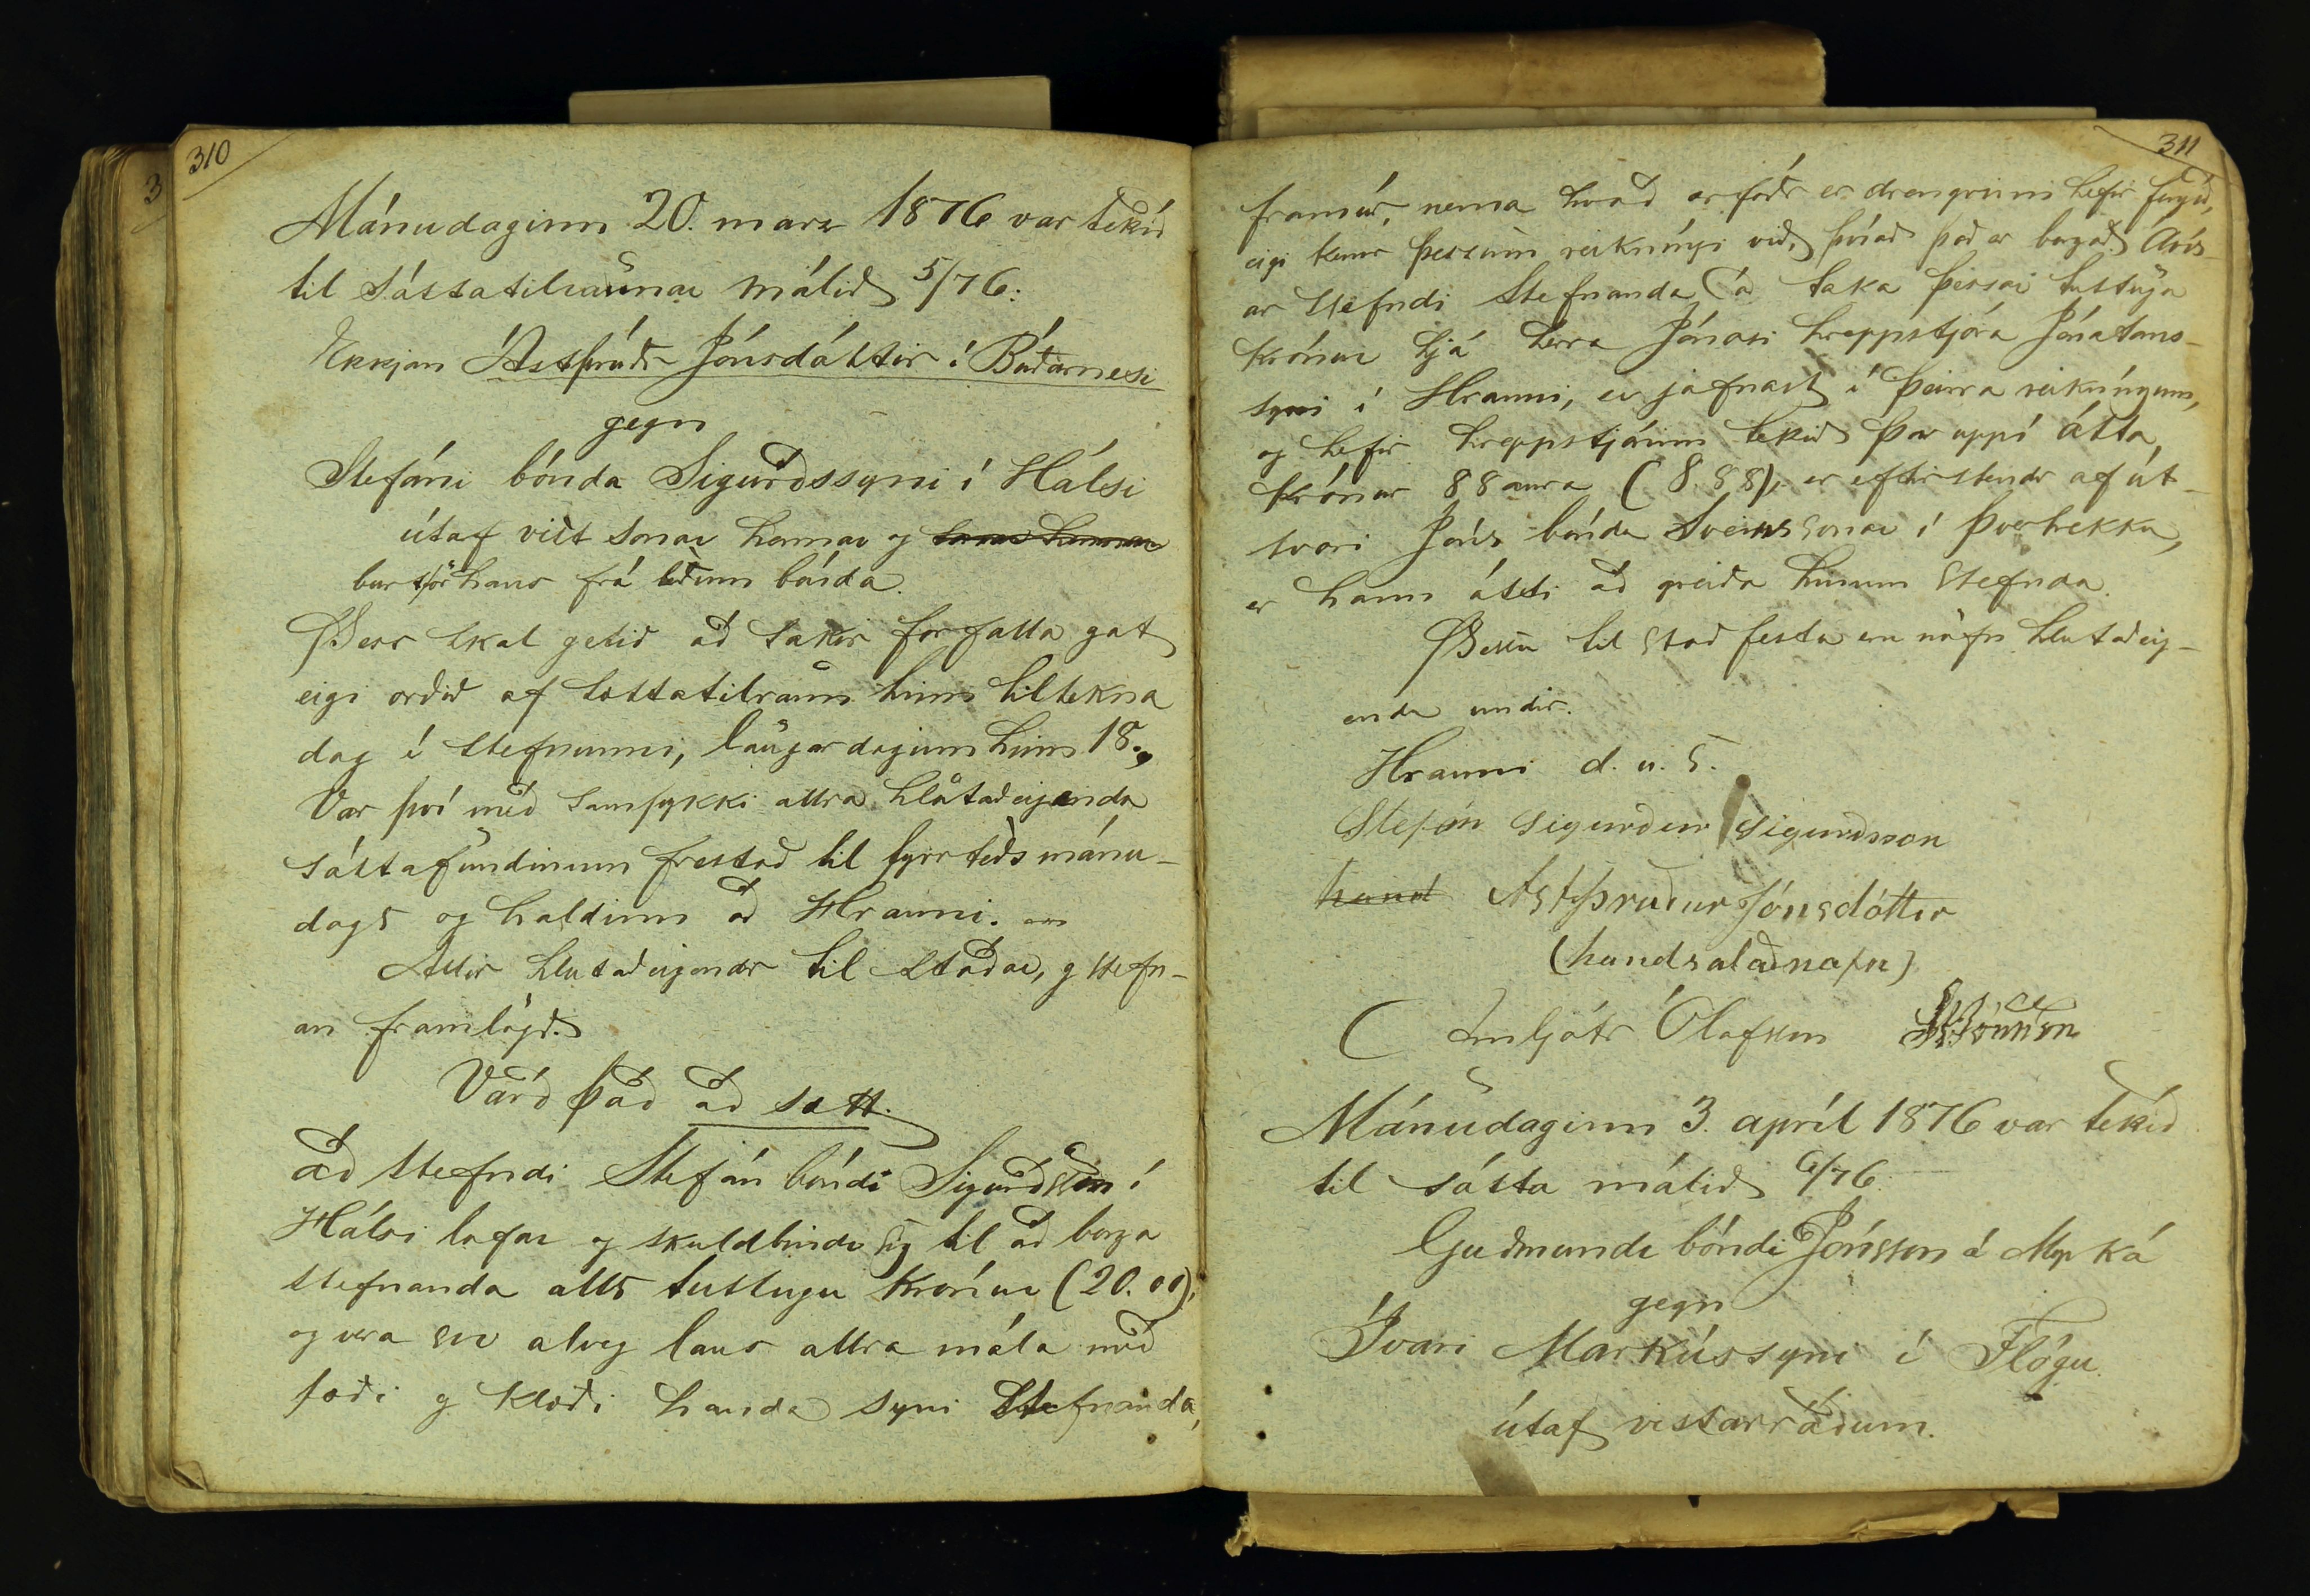 310
Mánudaginn 20. marz 1876 var tekið
til sáttatilraunar málið 5/76:
Ekkjan Ástþrúðr Jónsdóttir í Búðarnesi
gegn
Stefáni bónda Sigurðssyni í Hálsi
útaf vist sonar hennar og
burtför hans frá téðum bónda.
Þess skal getið að sakir forfalla gat
eigi orðið af sáttatilraun hinn tiltekna
dag í stefnunni, laugardaginn hinn 18.,
Var því með samþykki allra hlutaðeiganda
sáttafundinum frestað til fyrrtéðs mánu-
dags og haldinn að Hrauni.
Allir hlutaðeigendr til staðar, og stefn-
an framlögð.
Varð það að sætt.
að stefndi Stefán bóndi Sigurðsson í
Hálsi lofar og skuldbindr sig til að borga
stefnanda alls tuttugu krónur (20.00),
og vera svo alveg laus allra mála með
fæði og klæði handa syni stefnanda,
311
framúr, nema hvað er föðr er drengrinn hefir fengið,
eigi kemr þessum reikníngi við, þvíað það er borgað. Ávís-
ar stefndi stefnanda að taka þessar tuttugu
krónur hjá herra Jónasi hreppstjóra Jónatans-
syni í Hrauni, er jafnast í þeirra reikníngum,
og hefir hreppstjórinn tekið þar uppí átta
krónur 88 aura (8.88), er eftirstendr af út-
svari Jóns bónda Sveinssonar í Þverbrekku,
er hann átti að greiða hinum stefnda.
Þessu til staðfestu eru nöfn hlutaðeig-
enda undir.
Hrauni d. u. s.
Stefán Sigurður Sigurðsson
hand Astþruður Jónsdóttir
(handsalað nafn)
Arnljótr Ólafsson
Mánudaginn 3. apríl 1876 var tekið
til sátta málið 6/76
Guðmundr bóndi Jónsson á Myrká
gegn
Ívari Markússyni í Flögu
útaf vistarráðum.